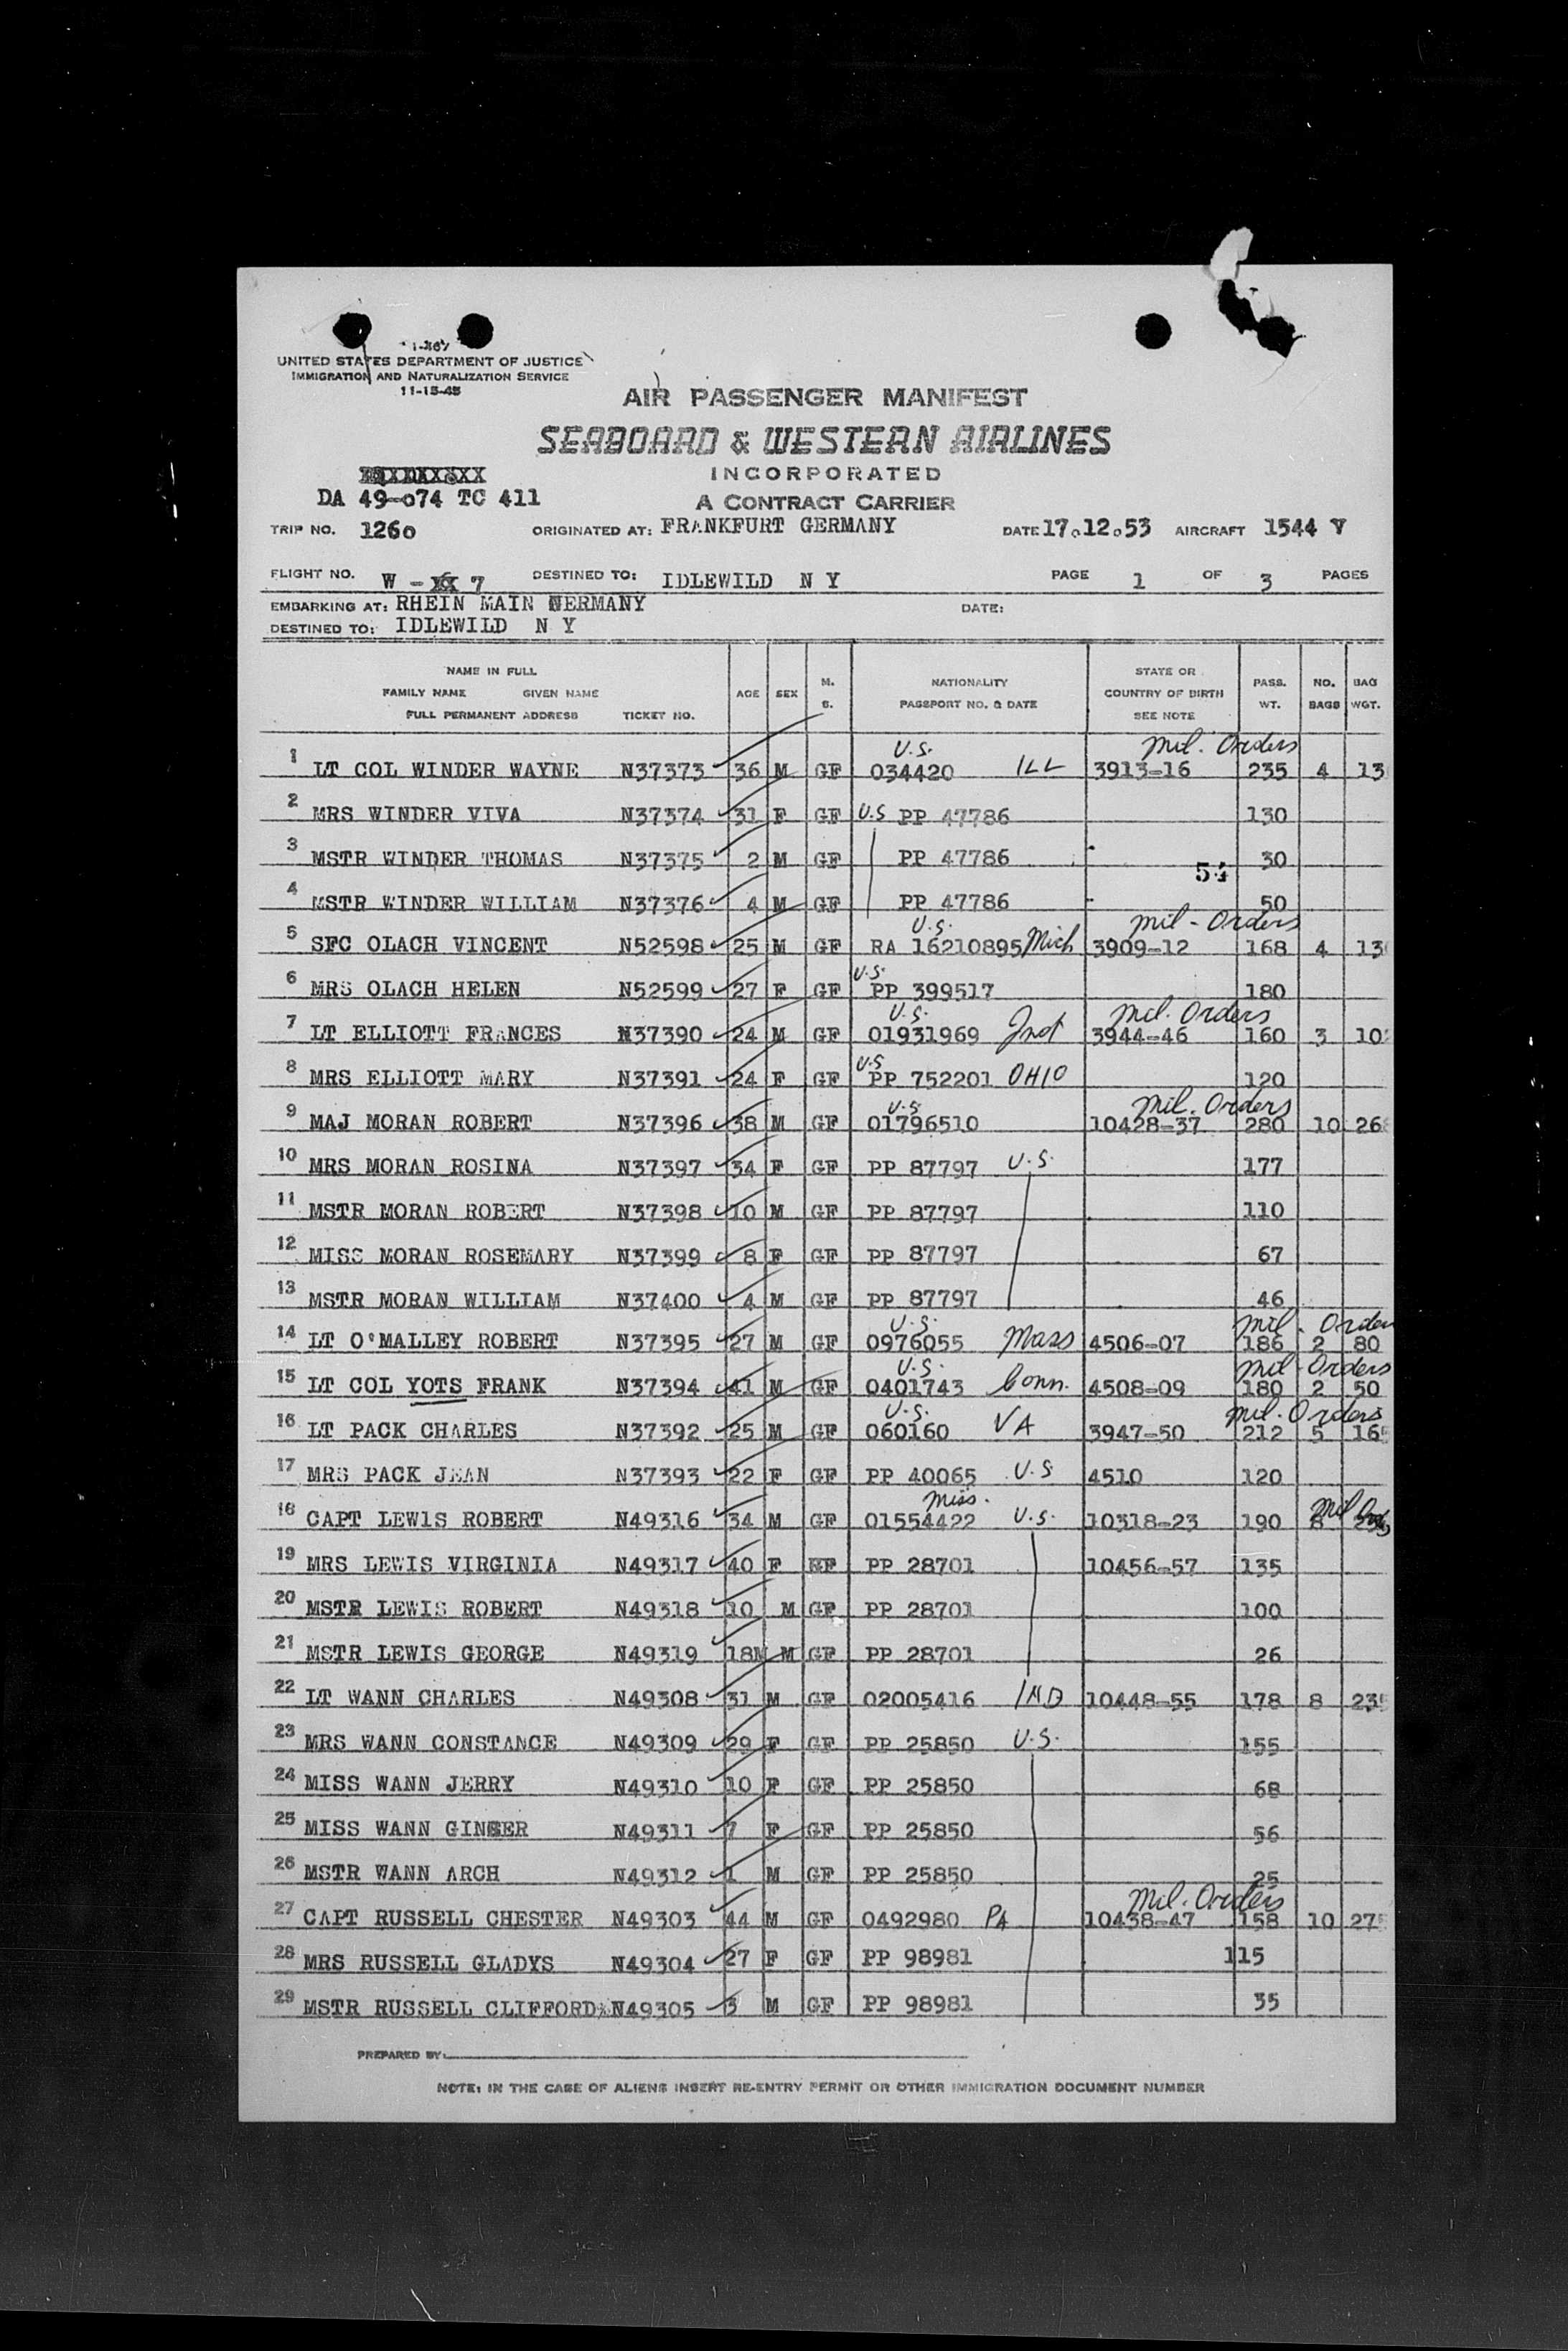 UNITED STATES DEPARTMENT OF JUSTICE
IMMIGRATION AND NATURALIZATION SERVICE
11-15-45
AIR PASSENGER MANIFEST
SEABOARD & WESTERN AIRLINES
INCORPORATED
DA 49-074 TC 411
A CONTRACT CARRIER
TRIP NO. 1260 ORIGINATED AT: FRANKFURT GERMANY DATE 17.12.53 AIRCRAFT 1544 V
FLIGHT NO. W - 7 DESTINED TO: IDLEWILD N Y PAGE 1 OF 3 PAGES
EMBARKING AT: RHEIN MAIN GERMANY DATE:
DESTINED TO: IDLEWILD N Y
NAME IN FULL
FAMILY NAME GIVEN NAME
FULL PERMANENT ADDRESS TICKET NO. AGE SEX M. S. NATIONALITY PASSPORT NO. & DATE STATE OR COUNTRY OF BIRTH SEE NOTE PASS. WT. NO. BAGS BAG WGT.
U.S. Mil. Orders
1 LT COL WINDER WAYNE N37373 36 M GF 034420 ILL 3913-16 235 4 13
2 MRS WINDER VIVA N37374 31 F GF U.S PP 47786 130
3 MSTR WINDER THOMAS N37375 2 M GF PP 47786 30
54
4 MSTR WINDER WILLIAM N37376 4 M GF PP 47786 50
U.S. Mil - Orders
5 SFC OLACH VINCENT N52598 25 M GF RA 16210895 Mich 3909-12 168 4 13
U.S.
6 MRS OLACH HELEN N52599 27 F GF PP 399517 180
U.S. Mil. Orders
7 LT ELLIOTT FRANCES N37390 24 M GF 01931969 Ind 3944-46 160 3 10
U.S
8 MRS ELLIOTT MARY N37391 24 F GF PP 752201 OHIO 120
U.S Mil. Orders
9 MAJ MORAN ROBERT N37396 38 M GF 01796510 10428-37 280 10 26
10 MRS MORAN ROSINA N37397 34 F GF PP 87797 U.S. 177
11 MSTR MORAN ROBERT N37398 10 M GF PP 87797 110
12 MISS MORAN ROSEMARY N37399 8 F GF PP 87797 67
13 MSTR MORAN WILLIAM N37400 4 M GF PP 87797 46
U.S. Mil. Orders
14 LT O'MALLEY ROBERT N37395 27 M GF 0976055 Mass 4506-07 186 2 80
U.S. Mil-Orders
15 LT COL YOTS FRANK N37394 41 M GF 0401743 Conn. 4508-09 180 2 50
U.S. Mil. Orders
16 LT PACK CHARLES N37392 25 M GF 060160 VA 3947-50 212 5 16
17 MRS PACK JEAN N37393 22 F GF PP 40065 U.S 4510 120
Miss. Mil Ords
18 CAPT LEWIS ROBERT N49316 34 M GF 01554422 U.S. 10318-23 190 8
19 MRS LEWIS VIRGINIA N49317 40 F PP 28701 10456-57 135
20 MSTR LEWIS ROBERT N49318 10 M GF PP 28701 100
21 MSTR LEWIS GEORGE N49319 18M M GF PP 28701 26
22 LT WANN CHARLES N49308 31 M GF 02005416 IND 10448-55 178 8 235
23 MRS WANN CONSTANCE N49309 29 F GF PP 25850 U.S. 155
24 MISS WANN JERRY N49310 10 F GF PP 25850 68
25 MISS WANN GINGER N49311 7 F GF PP 25850 56
26 MSTR WANN ARCH N49312 1 M GF PP 25850 25
Mil. Orders
27 CAPT RUSSELL CHESTER N49303 44 M GF 0492980 PA 10438-47 158 10 275
28 MRS RUSSELL GLADYS N49304 27 F GF PP 98981 115
29 MSTR RUSSELL CLIFFORD N49305 3 M GF PP 98981 35
PREPARED BY:
NOTE: IN THE CASE OF ALIENS INSERT RE-ENTRY PERMIT OR OTHER IMMIGRATION DOCUMENT NUMBER